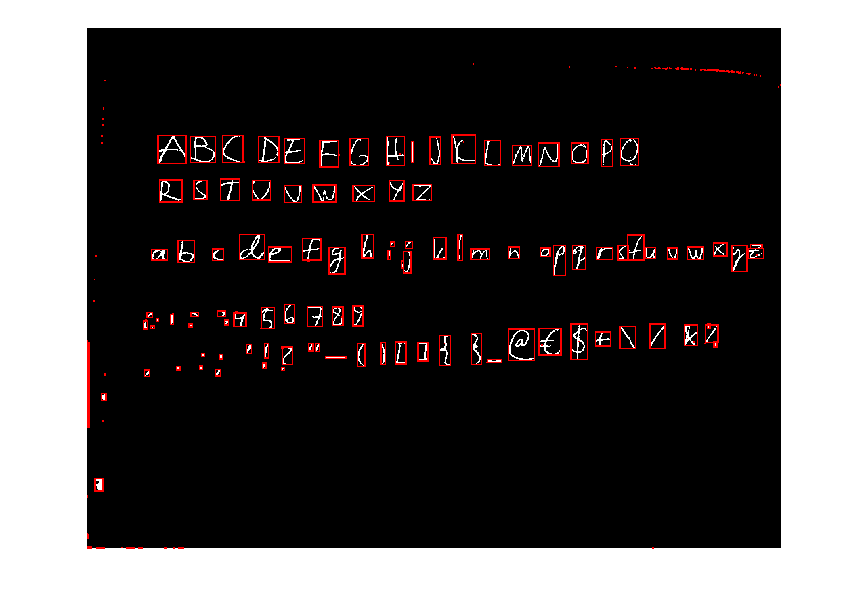 A B C D E F G H I J K L M N O P Q
R S T U V W X Y Z
a b c d e f g h i j k l m n o p q r s t u v w x y z
4 5 6 7 8 9
. . , : ; " ' ! ? " — ( ) [ ] { } _ @ € $ + \ / & %